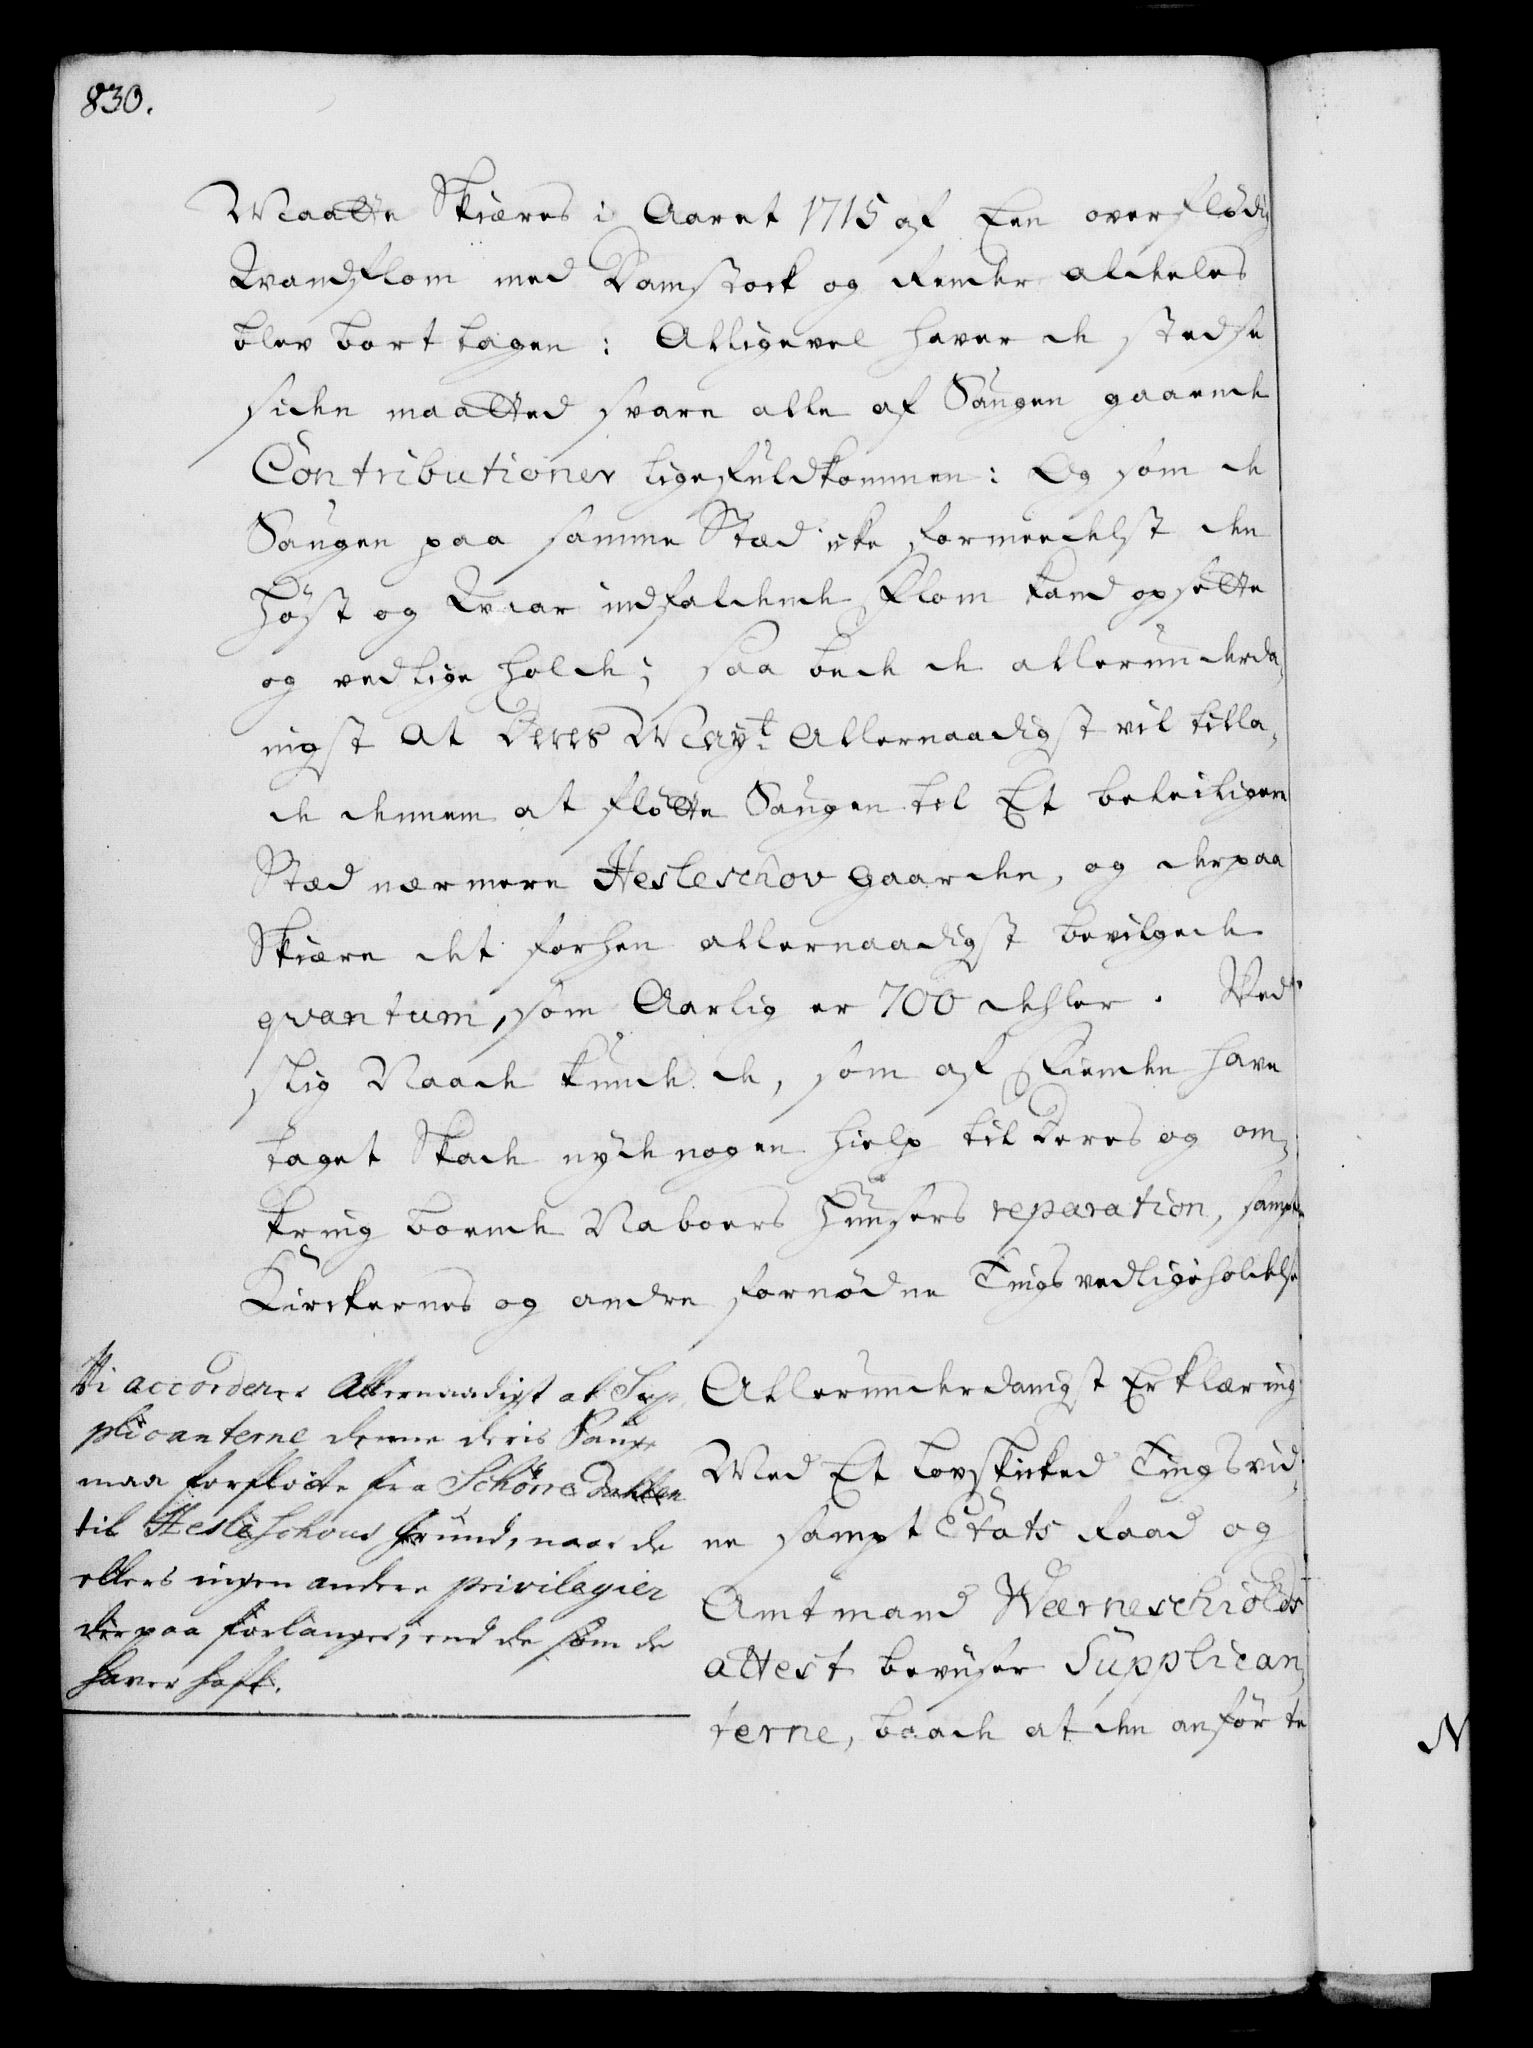 830.
Maatte Skiæres i Aaret 1715 af Een overflødig
Qvandflom med Damstock og Render aldeles
blev bort tagen: Alligevel haver de stedse
siden maatted svare alle af Saugen gaaende
Contributioner ligefuldkommen: Og som de
Saugen paa samme Stæd icke formeedelst den
Høst og Vaar indfaldende Flom kand opsette
og vedlige holde; saa bede de allerunderda,
nigst at Deres Mayt. Allernaadigst vil tilla,
de dennem at fløtte Saugen til Et beleiligere
Stæd nærmere Hesleschov gaarden, og derpaa
Skiære det forhen allernaadigst bevilgede
qvantum, som Aarlig er 700 dehler. Ved
slig Naade kunde de, som af Fienden have
taget Skade nyde nogen hielp til deres og om,
kring boende Naboers Huusers reparation, sampt
Kirckernes og andre fornødne Tings vedligeholdelse
Vi accorderer Allernaadigst at Sup,
plicanterne denne deris Sauge
maa forfløtte fra Schøne Dahlen
til Hesleschous Grund, naar de
ellers ingen andere privilegier
der paa forlanger, end de som de
haver hafft.
Allerunderdanigst Erklæring
Med Et lovskicked Tingsvid,
ne sampt Etats Raad og
Amtmand Wærneschiolds
attest beviser Supplican,
terne, baade at den anførte
N